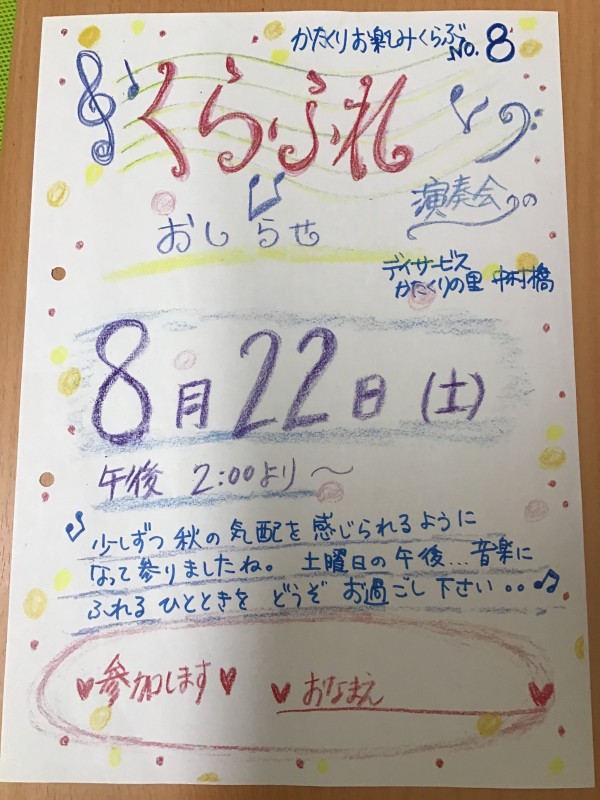 かたくりお楽しみくらぶ
NO. 8
くらふれ
演奏会の
おしらせ
デイサービス
かたくりの里 中村橋
8月22日(土)
午後 2:00より〜
少しずつ秋の気配を感じられるように
なって参りましたね。 土曜日の午後...音楽に
ふれるひとときを どうぞ お過ごし下さい。。
参加します
おなまえ